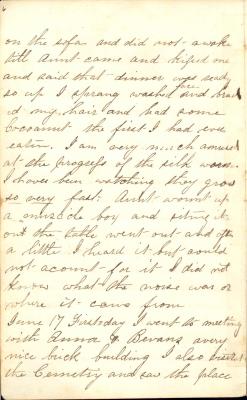 on the sofa and did not awake
till Aunt came and kissed me
and said that dinner was ready
so up I sprang washed face and braid
ed my hair and had some
Cocoanut the first I had ever
eaten. I am very much amused
at the progress of the silk worm
I have been watching they grow
so very fast. Aunt wound up
a muscle boy and
out the table went out and
a little I heard it but could
not acount for it I did not
know what the noise was or
where it came from
June 17 Firstday I went to meeting
with Anna Bevans a very
nice brick building I also
the Cemetry and saw the place